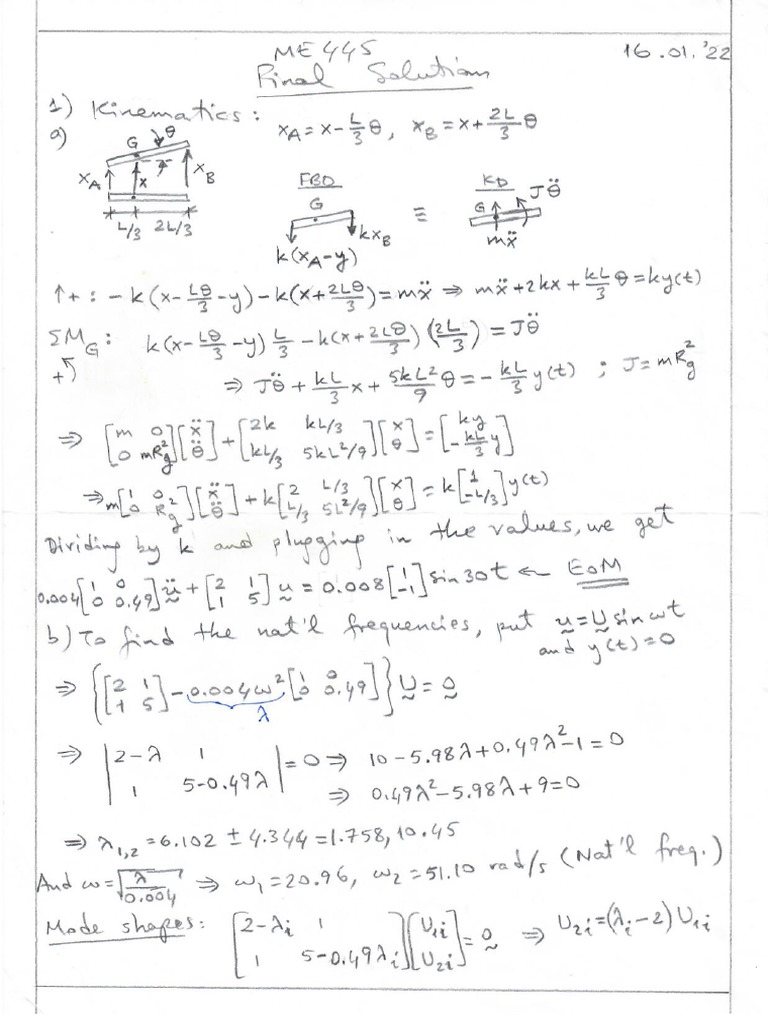 ME 445
16.01.'22
Final Solutions
1) Kinematics: x_A = x - L/3 θ, x_B = x + 2L/3 θ
a)
G θ
x_A x x_B
L/3 2L/3
FBD
G
k(x_A-y) kx_B
≡
KD
G Jθ̈
mẍ
↑+ : -k(x - Lθ/3 - y) - k(x + 2Lθ/3) = mẍ ⇒ mẍ + 2kx + kL/3 θ = ky(t)
ΣM_G: k(x - Lθ/3 - y) L/3 - k(x + 2Lθ/3)(2L/3) = Jθ̈
+)
⇒ Jθ̈ + kL/3 x + 5kL²/9 θ = - kL/3 y(t) ; J = mR_g²
⇒ [m 0; 0 mR_g²][ẍ; θ̈] + [2k kL/3; kL/3 5kL²/9][x; θ] = [ky; -kL/3 y]
⇒ m[1 0; 0 R_g²][ẍ; θ̈] + k[2 L/3; L/3 5L²/9][x; θ] = k[1; -L/3] y(t)
Dividing by k and plugging in the values, we get
0.004[1 0; 0 0.49]ü + [2 1; 1 5]u = 0.008[1; -1] sin30t ← EoM
b) To find the nat'l frequencies, put u = U sin ωt
and y(t) = 0
⇒ {[2 1; 1 5] - 0.004ω²[1 0; 0 0.49]} U = 0
λ
⇒ |2-λ 1; 1 5-0.49λ| = 0 ⇒ 10 - 5.98λ + 0.49λ² - 1 = 0
⇒ 0.49λ² - 5.98λ + 9 = 0
⇒ λ_1,2 = 6.102 ± 4.344 = 1.758, 10.45
And ω = √(λ/0.004) ⇒ ω_1 = 20.96, ω_2 = 51.10 rad/s (Nat'l freq.)
Mode shapes: [2-λ_i 1; 1 5-0.49λ_i][U_1i; U_2i] = 0 ⇒ U_2i = (λ_i - 2) U_1i